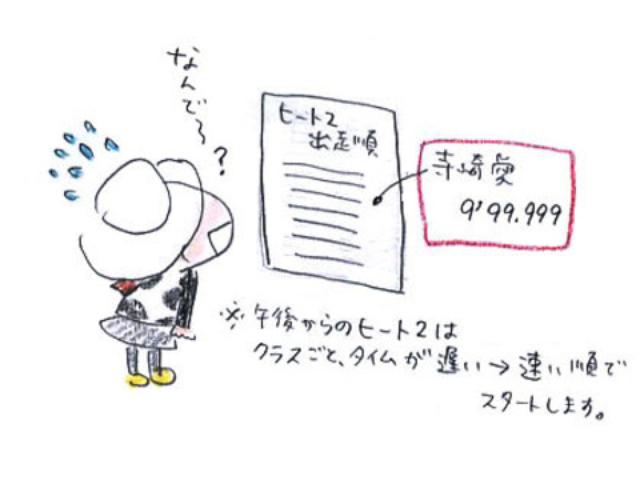 なんでろ?
ヒート2
出走順
寺崎愛
9'99.999
※午後からのヒート2は
クラスごと、タイムが遅い→速い順で
スタートします。